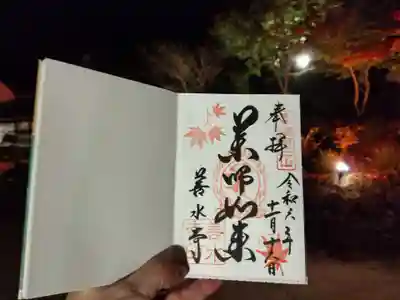 奉拝
令和六年
十一月十六日
薬師如来
善水寺